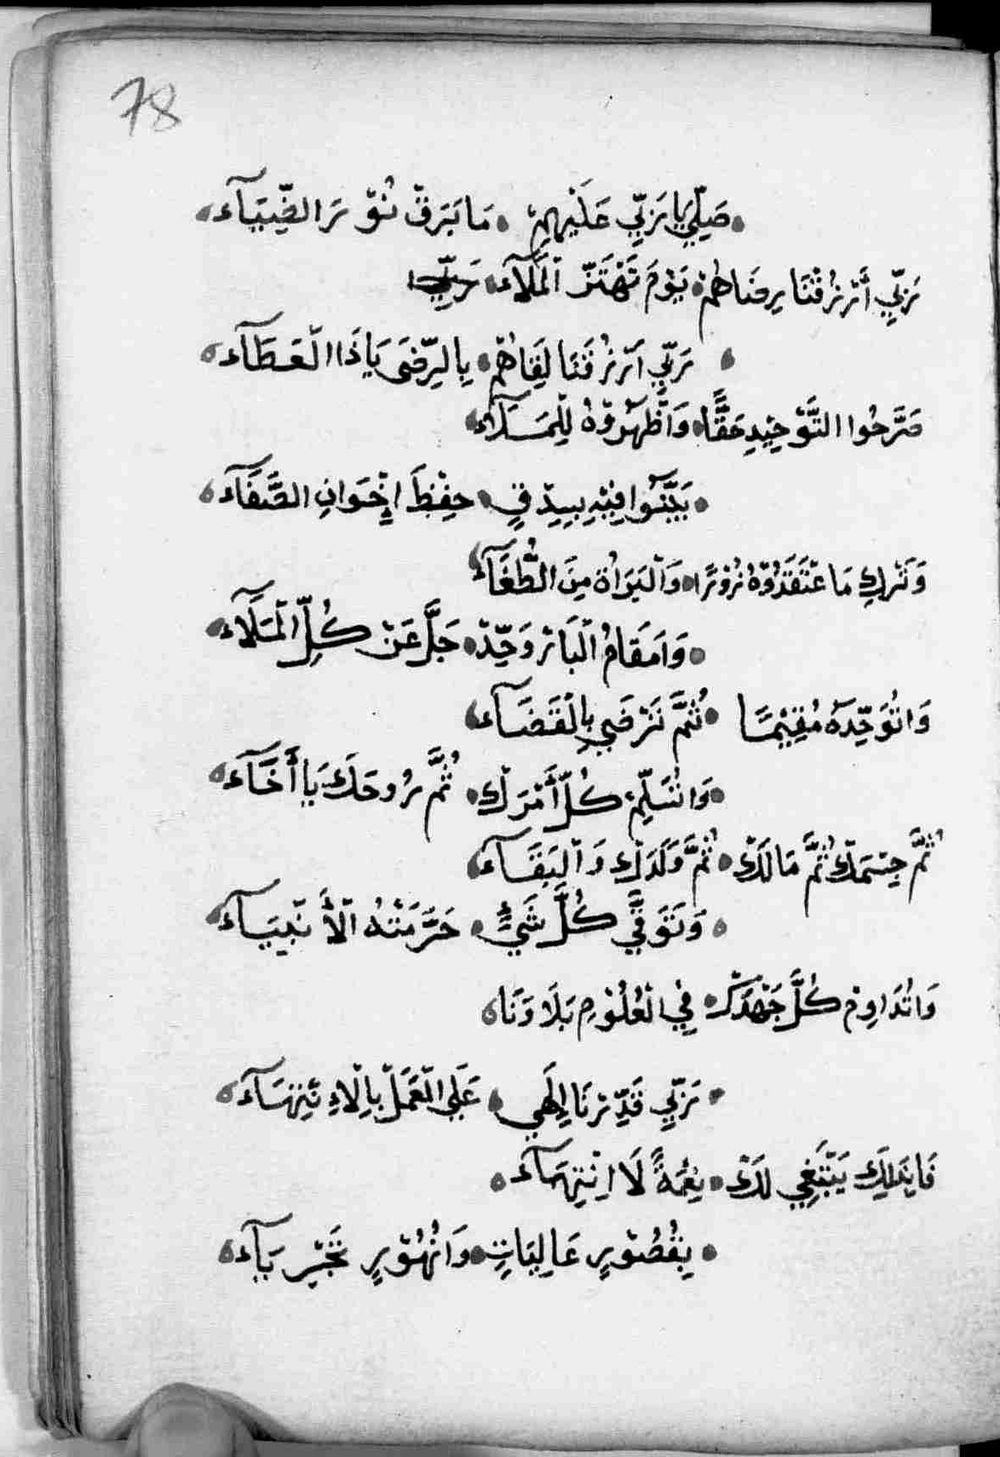 78
صَلِّي يَا رَبِّي عَلَيْهِمْ • مَا بَرَقْ نُوْرَ الضِّيَآءَ
رَبِّي أَرْزُقْنَا رِضَاهُمْ • يَوْمَ تَهْتَزّ الْمَلَآءَ
• رَبِّي اَرْزُقَنَا لِقَاهُمْ • بِالرِّضَى يَاذَا الْعَطَآءَ
صَرَّحُوا التَّوْحِيْدِ حَقًّا • وَاَظْهَرُوْهُ لِلْمَلَآءَ
• بَيَّنُوا فِيْهِ بِصِدْقٍ • حِفْظَ إِخْوَانِ الصَّفَآءَ
وَتَرْكِ مَا عْتَقَدُوْهُ زُوْرًا • وَالْبَرَاةْ مِنَ الطُّغَآءَ
• وَامَقَامُ الْبَارْ وَحِّدْ • جَلَّ عَنْ كُلِّ الْمَلَآءَ
وَاتُوَحِّدَهُ مُقِيْمًا • ثُمَّ تَرْضَي بِالْقَضَآءَ
• وَاتْسَلِّمْ كُلّ أَمْرَكْ • ثُمَّ رُوحَكَ يَا أَخَآءَ
ثُمَّ جِسْمَكْ ثُمَّ مَالَكْ • ثُمَّ وَلَدَكْ وَالْبَقَآءَ
• وَتَوَقَّي كُلَّ شَيْءٍ • حَرَّمَتْهُ الْأَنْبِيَآءَ
وَاتْدَاوِمْ كُلَّ جَهْدَكْ • فِي الْعُلُوْمِ بَلَا وَنَا
• رَبِّي قَدِّرْنَا إِلَهِي • عَلَى الْعَمَلْ بِالْاءِنْتِهَآءَ
فَابِذَلِكَ يَنْبَغِي لَكْ • نِعْمَةً لَا انْتِهَآءَ
• بِقُصُوْرٍ عَالِيَاتٍ • وَانْهُوْرٍ تَجْرِيَآءَ